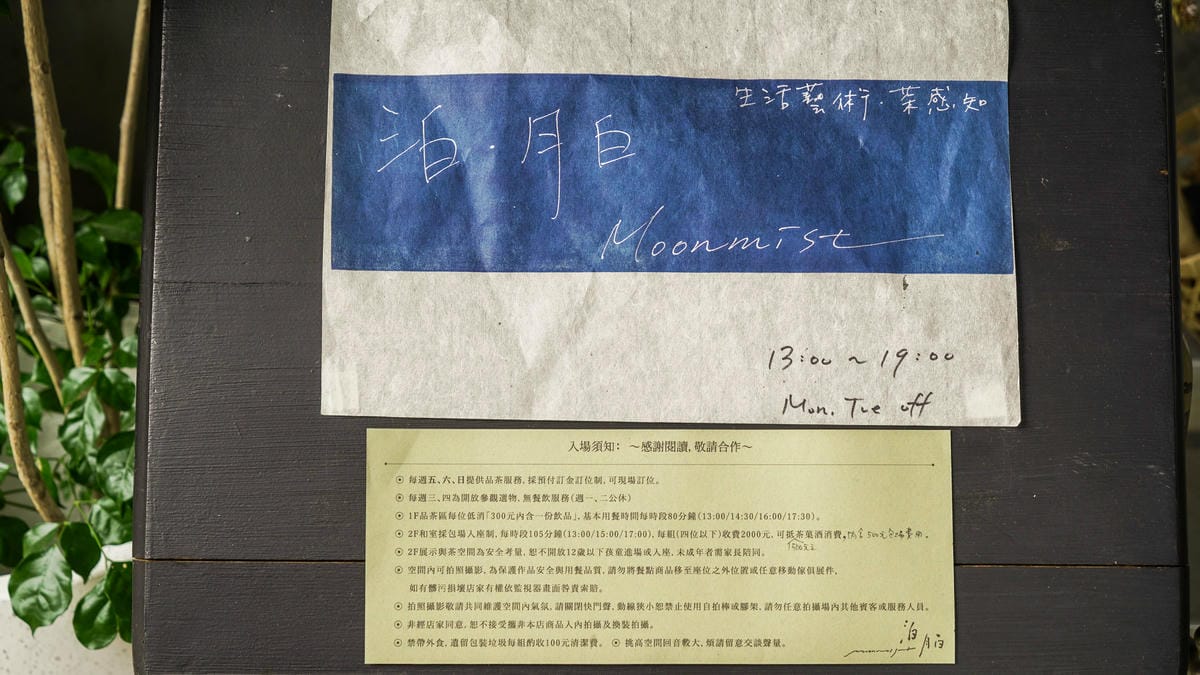 生活藝術·茶感知
泊·月白
Moonmist
13:00 ~ 19:00
Mon. Tue off
入場須知：～感謝閱讀, 敬請合作～
⊙ 每週五、六、日提供品茶服務, 採預付訂金訂位制, 可現場訂位。
⊙ 每週三、四為開放參觀選物, 無餐飲服務(週一、二公休)
⊙ 1F品茶區每位低消「300元內含一份飲品」, 基本用餐時間每時段80分鐘(13:00/14:30/16:00/17:30)。
⊙ 2F和室採包場入座制, 每時段105分鐘(13:00/15:00/17:00), 每組(四位以下)收費2000元, 可抵茶葉酒消費。
1500元
⊙ 2F展示與茶空間為安全考量, 恕不開放12歲以下孩童進場或入座, 未成年者需家長陪同。
⊙ 空間內可拍照攝影, 為保護作品安全與用餐品質, 請勿將餐點商品移至座位之外位置或任意移動傢俱展件,
如有髒污損壞店家有權依監視器畫面咎責索賠。
⊙ 拍照攝影敬請共同維護空間內氣氛, 請關閉快門聲, 動線狹小恕禁止使用自拍棒或腳架, 請勿任意拍攝場內其他賓客或服務人員。
⊙ 非經店家同意, 恕不接受攜非本店商品入內拍攝及換裝拍攝。
⊙ 禁帶外食, 遺留包裝垃圾每組酌收100元清潔費。 ⊙ 挑高空間回音較大, 煩請留意交談聲量。
泊月白
moonmist